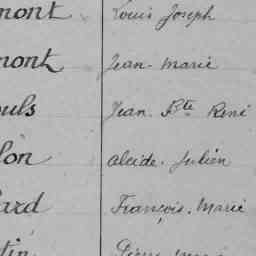 mont Louis Joseph
mont Jean-Marie
ouls Jean Bte René
lon Alcide-Julien
ard François-Marie
tin